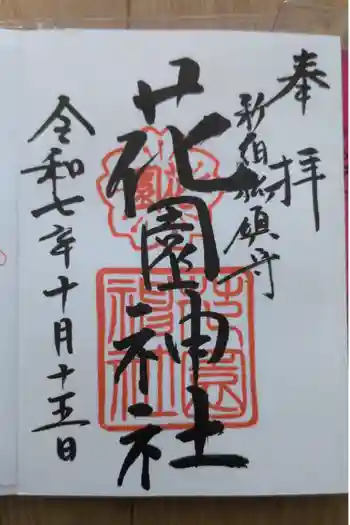 奉拝
新宿総鎮守
花園神社
令和七年十月十五日
花園神社